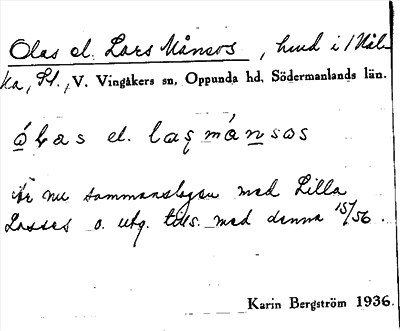 Olas el. Lars Månsos, hmd i 1 Väl-
ka, St., V. Vingåkers sn, Oppunda hd, Södermanlands län.
ólas el. laş mánsos
är nu sammanslagen med Lilla
Lasses o. utg. tills. med denna 15/56.
Karin Bergström 1936.